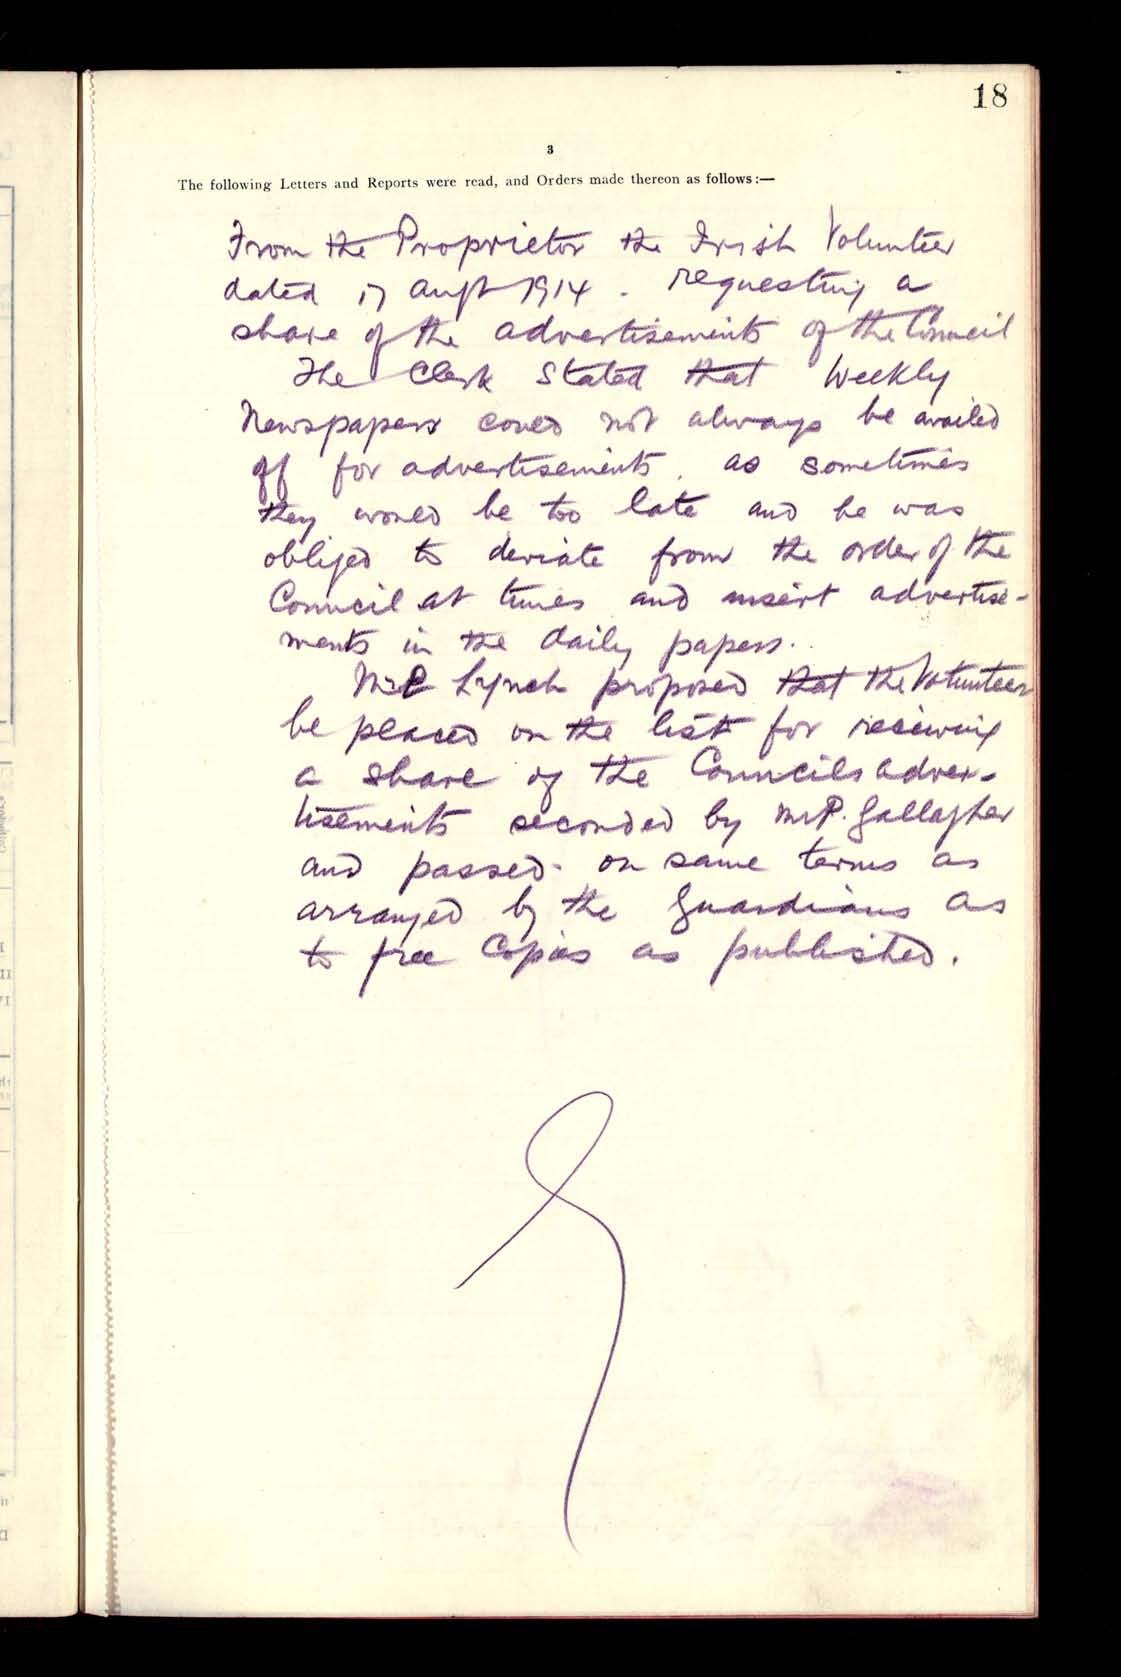 18
3
The following Letters and Reports were read, and Orders made thereon as follows:—
From the Proprietor the Irish Volunteer
dated 17 Augst 1914. requesting a
share of the advertisements of the Council
The Clerk Stated that Weekly
Newspapers could not always be availed
off for advertisements, as sometimes
they would be too late and he was
obliged to deviate from the order of the
Council at times and insert advertise-
ments in the daily papers.
Mr P Lynch proposed that the Volunteer
be placed on the list for receiving
a share of the Councils adver-
tisements seconded by Mr P. Gallagher
and passed. on same terms as
arranged by the Guardians as
to free Copies as published.